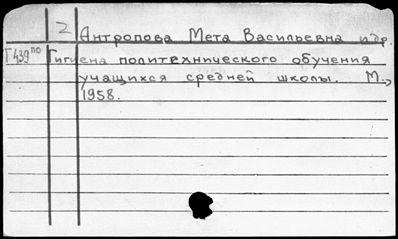 2 Антропова Мета Васильевна и др.
Т439 по Гигиена политехнического обучения
учащихся средней школы. М.,
1958.